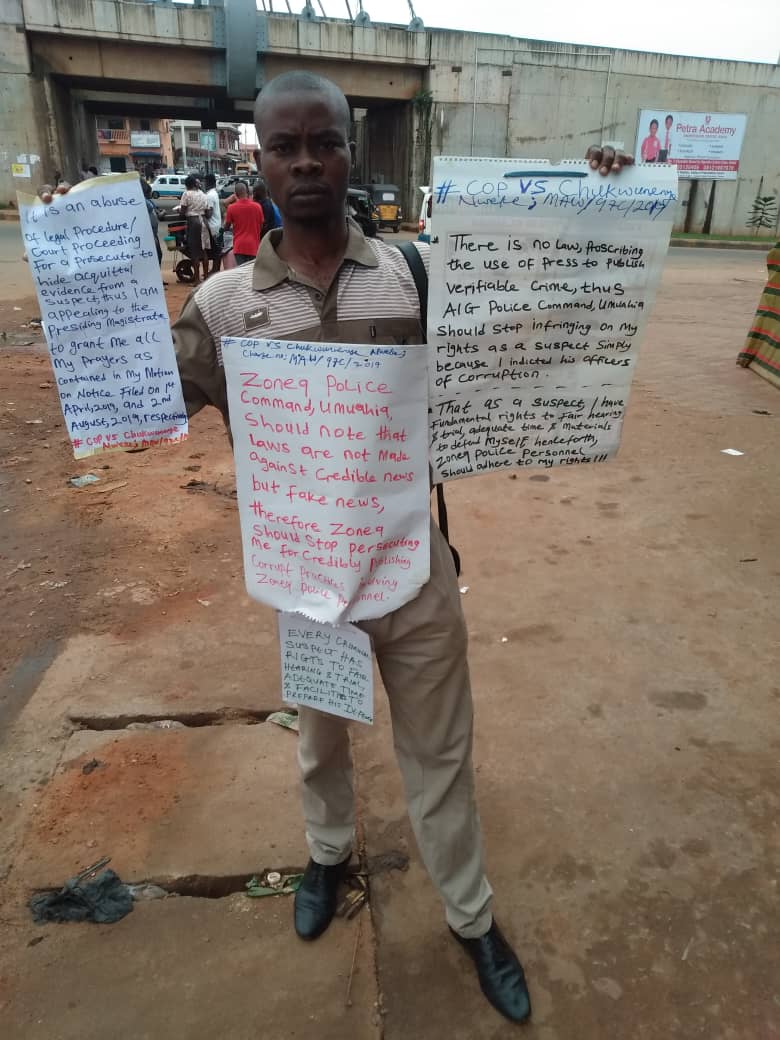 It is an abuse
of legal Procedure/
Court Proceeding
for a Prosecutor to
hide acquittal
evidence from a
suspect, thus I am
appealing to the
Presiding Magistrate
to grant me all
My Prayers as
contained in My Motion
on Notice Filed on 1st
April, 2019, and 2nd
August, 2019, respectively
# COP VS Chukwunenye
Nweke; MAW/97C/2019
# COP VS Chukwunenye Nweke;
Charge no: MAW/97C/2019
Zone9 Police
Command, Umuahia,
Should note that
Laws are not Made
against Credible news
but fake news,
therefore Zone9
Should Stop persecuting
Me for Credibly Publishing
Corrupt Practices
Zone9 Police Personnel.
EVERY CRIMINAL
SUSPECT HAS
RIGTS TO FAIR
HEARING & TRIAL,
ADEQUATE TIME
& FACILITIES TO
PREPARE HIS DEFENCE
# COP VS Chukwunenye
Nweke; MAW/97C/2019
There is no Law, Proscribing
the use of Press to Publish
Verifiable Crime, thus
AIG Police Command, Umuahia
Should Stop infringing on My
rights as a suspect Simply
because I indicted his officers
of Corruption.
That as a suspect, I have
Fundamental rights to fair hearing
& trial, adequate time & Materials
to defend Myself. henceforth,
Zone9 Police Personnel
Should adhere to my rights!!!
Petra Academy